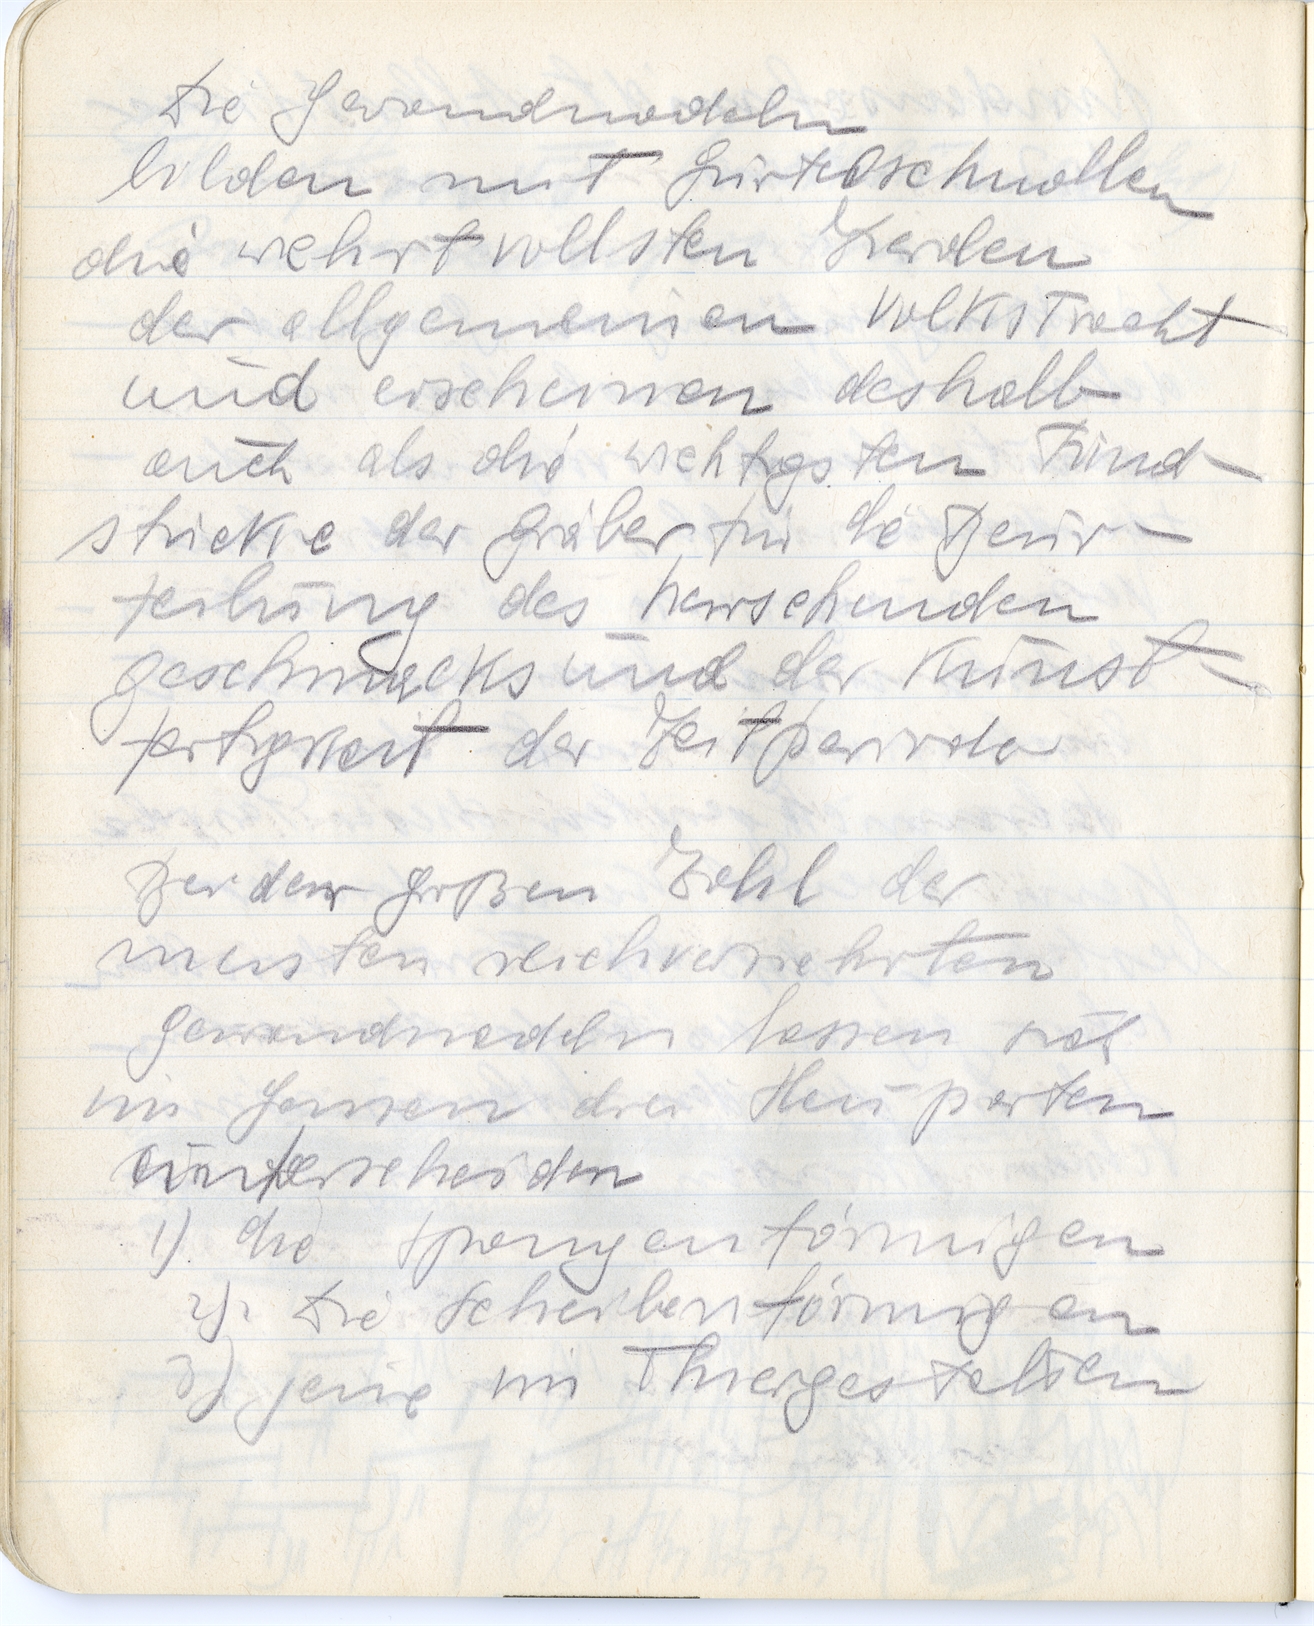 Die Gewandnadeln
bilden mit Gürtelschnallen
die wehrtvollsten Zierden
der allgemeinen Volkstracht
und erscheinen deshalb
auch als die wichtigsten Fund-
stücke der Gräber für die Beur-
teilung des herrschenden
geschmacks und der Kunst-
fertigkeit der Zeitperiode
Bei der großen Zahl der
meisten reichverziehrten
Gewandnadeln lassen sich
im Ganzen drei Hauparten
unterscheiden
1) die spangenförmigen
2). Die Scheibenförmigen
3) jene in Thiergestalten